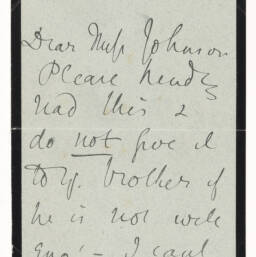 Dear Miss Johnson
Please kindly
read this &
do not give it
to yr. brother if
he is not well
eno' - I can't